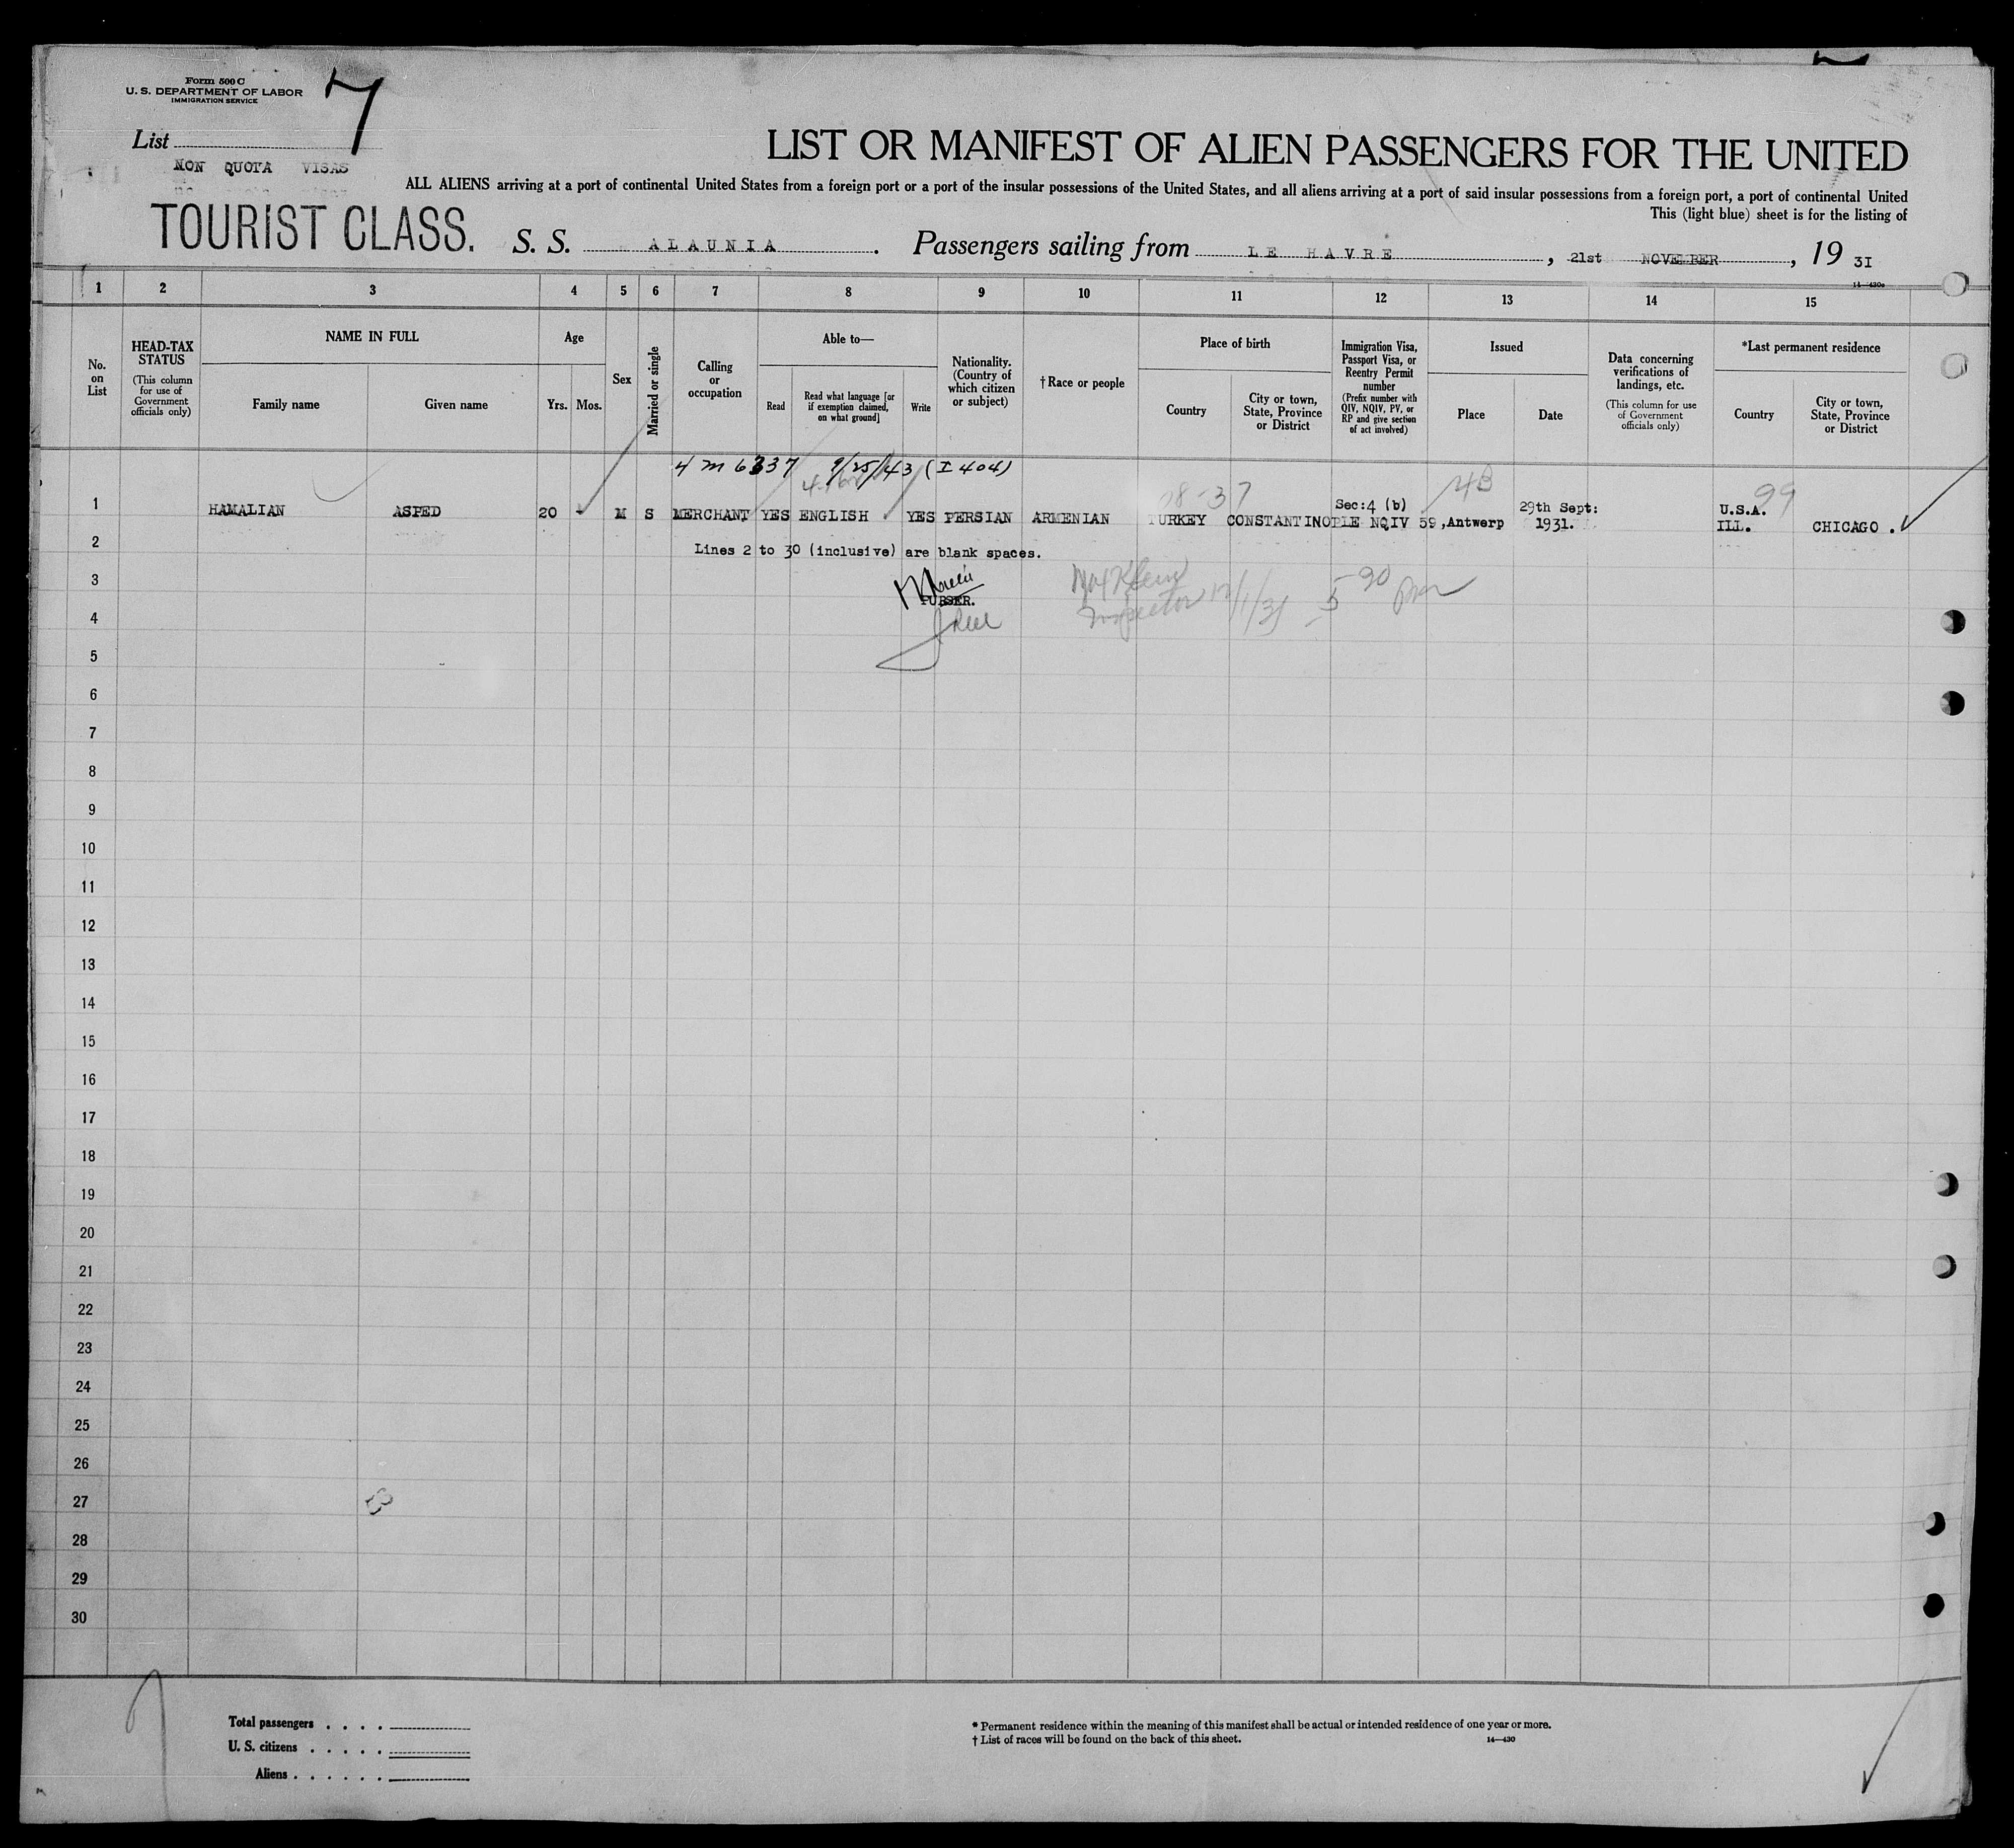 Form 500 C
U. S. DEPARTMENT OF LABOR
IMMIGRATION SERVICE
7
List
NON QUOTA VISAS
LIST OR MANIFEST OF ALIEN PASSENGERS FOR THE UNITED
ALL ALIENS arriving at a port of continental United States from a foreign port or a port of the insular possessions of the United States, and all aliens arriving at a port of said insular possessions from a foreign port, a port of continental United
This (light blue) sheet is for the listing of
TOURIST CLASS.
S. S. ALAUNIA. Passengers sailing from LE HAVRE, 21st NOVEMBER, 19 31
14—430c
1 2 3 4 5 6 7 8 9 10 11 12 13 14 15
No. on List
HEAD-TAX STATUS
(This column for use of Government officials only)
NAME IN FULL
Family name
Given name
Age
Yrs. Mos.
Sex
Married or single
Calling or occupation
Able to—
Read
Read what language [or if exemption claimed, on what ground]
Write
Nationality. (Country of which citizen or subject)
†Race or people
Place of birth
Country
City or town, State, Province or District
Immigration Visa, Passport Visa, or Reentry Permit number
(Prefix number with QIV, NQIV, PV, or RP and give section of act involved)
Issued
Place
Date
Data concerning verifications of landings, etc.
(This column for use of Government officials only)
*Last permanent residence
Country
City or town, State, Province or District
4 m 6337 9/25/43 (I 404)
4B
99
Sec:4 (b) 29th Sept: U.S.A.
1 HAMALIAN ASPED 20 - M S MERCHANT YES ENGLISH YES PERSIAN ARMENIAN TURKEY CONSTANTINOPLE NQIV 59, Antwerp 1931. ILL. CHICAGO.
2 Lines 2 to 30 (inclusive) are blank spaces.
3
PURSER.
Inspector 12/1/31 5 30 pm
4
5
6
7
8
9
10
11
12
13
14
15
16
17
18
19
20
21
22
23
24
25
26
27
28
29
30
Total passengers . . . .
U. S. citizens . . . . .
Aliens . . . . . .
* Permanent residence within the meaning of this manifest shall be actual or intended residence of one year or more.
† List of races will be found on the back of this sheet.
14—430